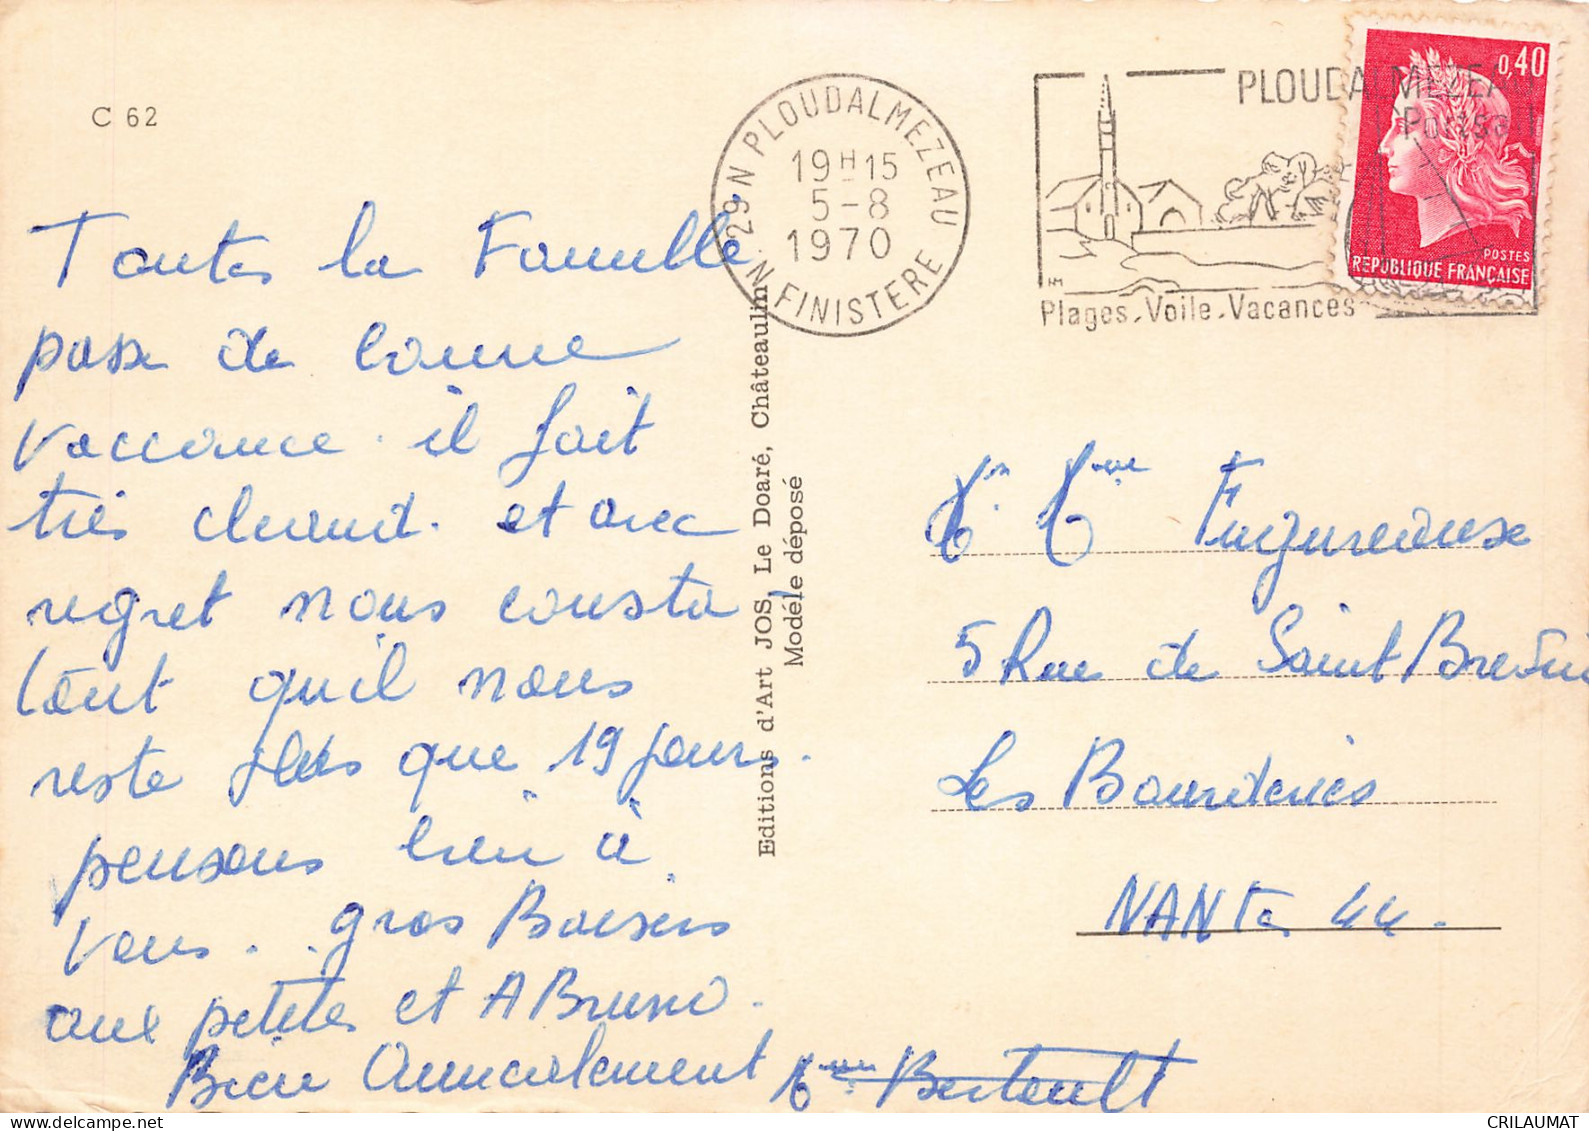 C 62
Toutes la Famille
passe de bonne
vaccance. il fait
très chaud. et avec
regret nous consta
tont qu'il nous
reste plus que 19 jours.
pensons bien à
vous. gros Baisers
aux petites et A Bruno.
Bien Amicalement Mme Bertault
Editions d'Art JOS Le Doaré, Châteaulin
Modèle déposé
29 N PLOUDALMEZEAU
19 H 15
5-8
1970
N. FINISTERE
PLOUDALMEZEAU
Plages. Voile. Vacances
0,40
POSTES
REPUBLIQUE FRANÇAISE
Mr Mme
5 Rue de Saint Brevin
Les Bourderies
NANTes 44.
CRILAUMAT